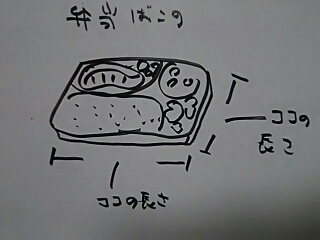 弁当ばこの
ココの
長さ
ココの長さ